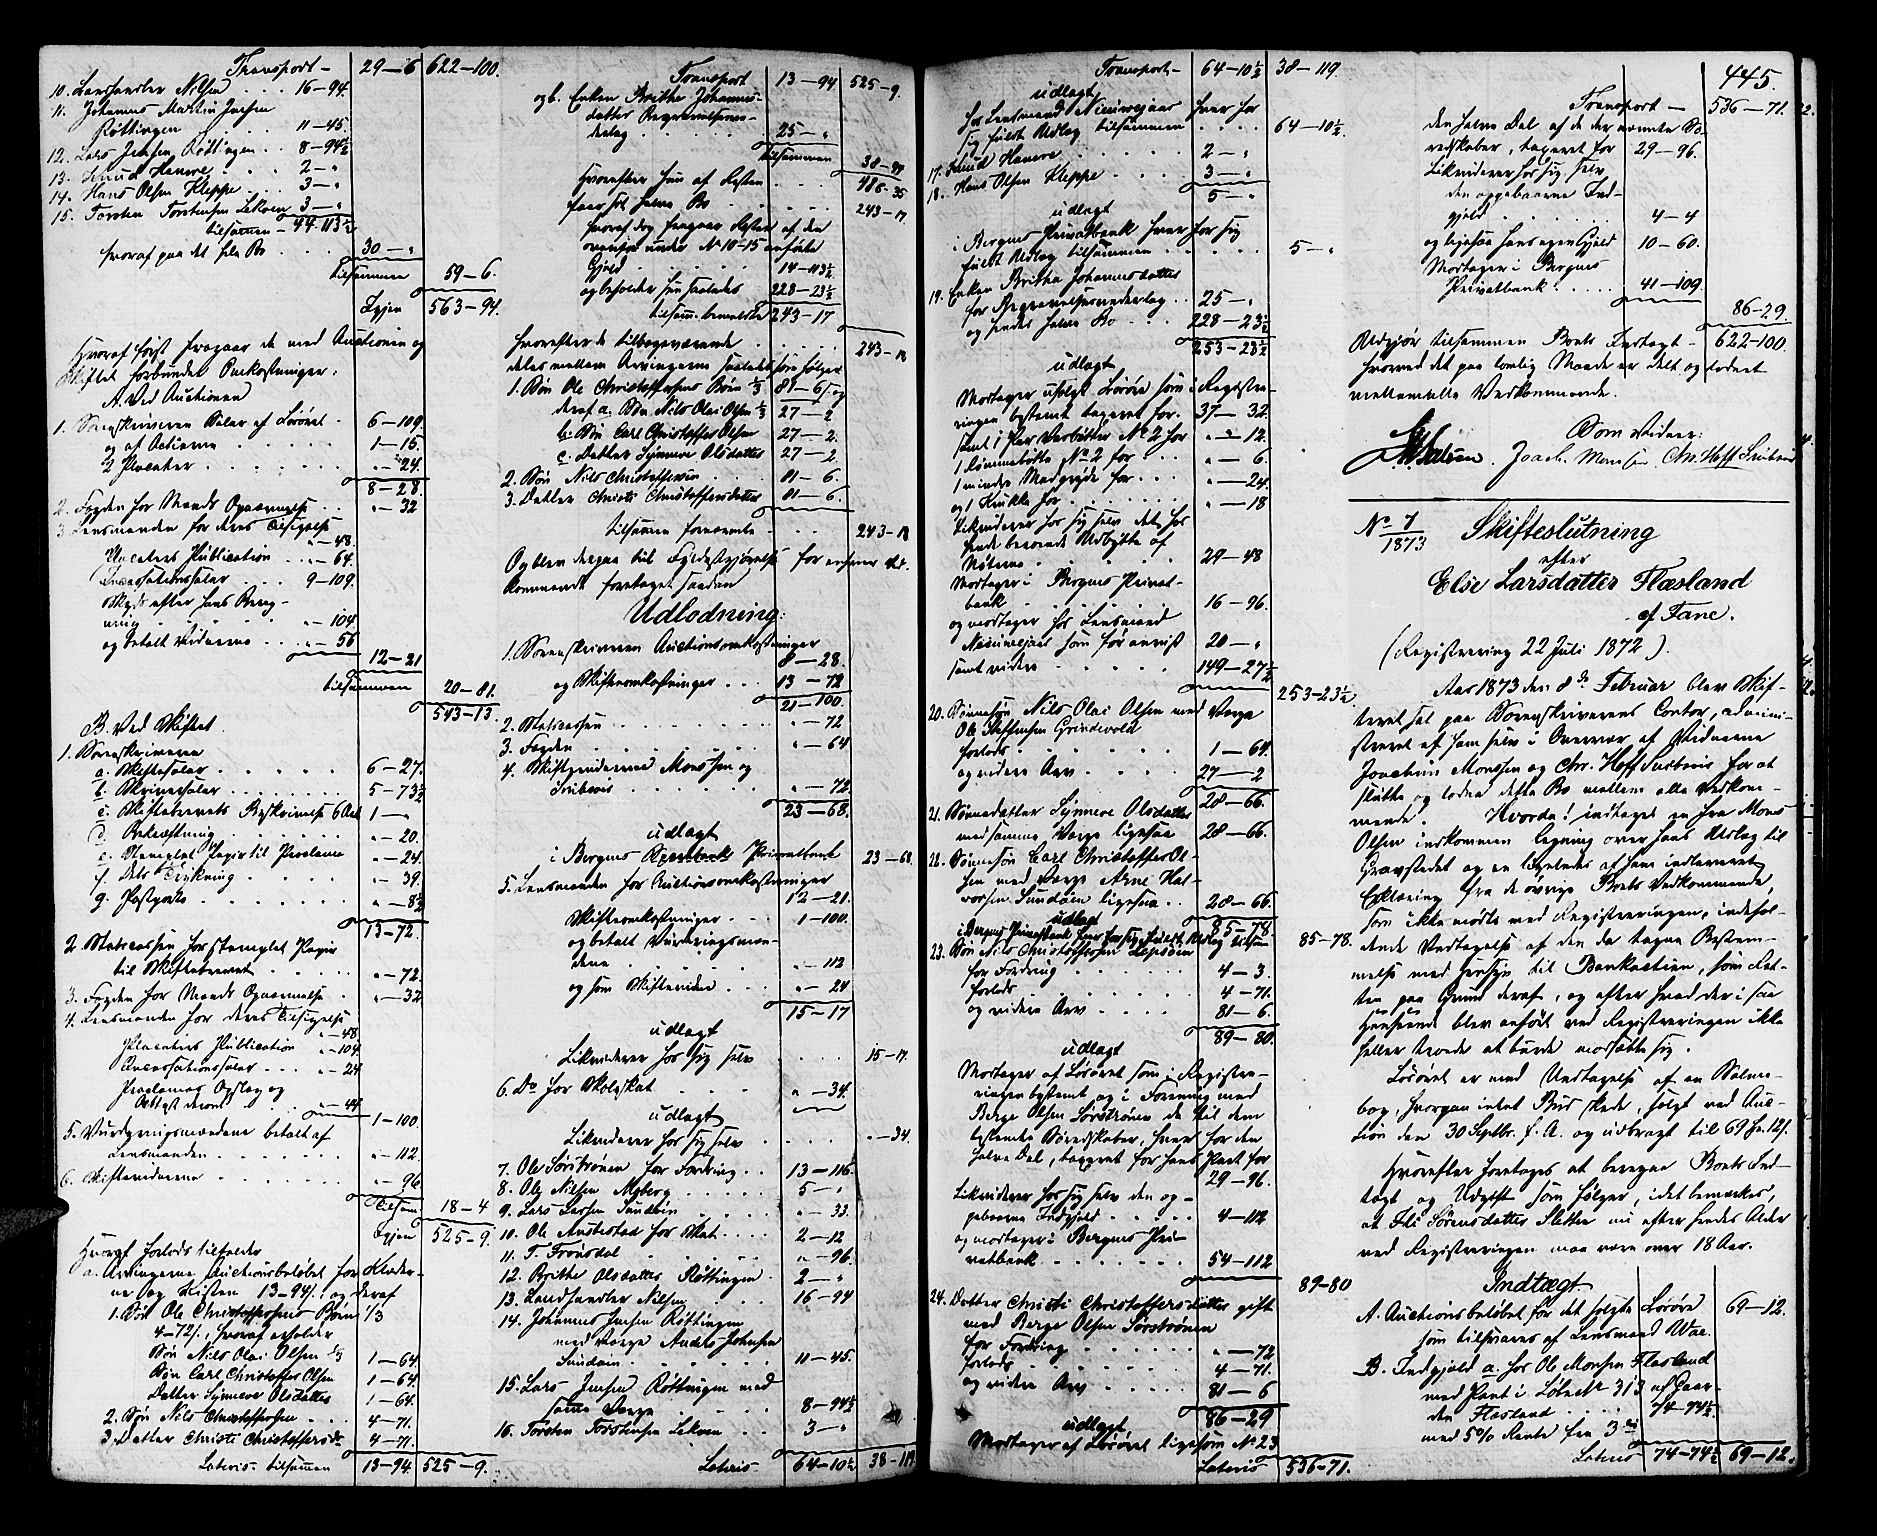 Transport - 29-6 622-100.
10. Landhandler Nilsen . . . 16-94.
11. Johannes Martin Jensen
Røttingen . . . . 11-45.
12. Lars Jensen Røttingen . . 8-94½
13. Knud Hanere . . . . 2-"
14. Hans Olsen Kleppe . . . 3-"
15. Torsten Torstensen Lekven 3-"
tilsammen - 44-113½
hvoraf paa det hele Bo . . . 30-"
tilsammen 59-6.
Igjen 563-94.
Hvoraf først fragaar de med Auctionen og
Skiftet forbundne Omkostninger:
A. Ved Auctionen
1. Sorenskriveren Salær af Løsøret . 6-109.
og af Actierne . . . . 1-15.
2 Placater . . . . . . "-24.
8-28.
2. Fogden for Mands Opnævnelse . . "-32
3. Lensmanden for deres Tilsigelse
"-48.
Placaters Publication . . "-64.
Incassationssalær . . . 9-109.
Skyds efter hans Bereg-
ning . . . . . . "-104
og betalt Vidnerne . . . "-56
12-21
tilsammen 20-81.
543-13.
B. Ved Skiftet.
1. Sorenskriveren
a. Skiftesalær . . . . . 6-27.
b. Skriversalær . . . . . 5-73½
c. Skiftebrevets Beskrivelse 6 Ark 1-"
d. Bekræftning . . . . . "-20.
e. Stemplet Papir til Proclama "-24.
f. Dets Trykning . . . . "-39.
g. Postporto . . . . . . "-8½
13-72.
2. Statscassen for stemplet Papir
til Skiftebrevet . . . . "-72
3. Fogden for Mands Opnævnelse . "-32
4. Lensmanden for deres Tilsigelse
"-48
Placaters Publication "-104
Incassationssalær . . . "-24
Proclamas Opslag og
Attest derom . . . "-44
1-100.
5. Vurderingsmændene betalt af
Lensmanden . . . . . . "-112
6. Skiftevidnerne . . . . . "-96
Tilsam. 18-4
Igjen 525-9.
Hvoraf forlods tilfalder
a. Arvingerne Auctionsbeløbet for Klæder-
ne og Kisten 13-94/. og deraf
1. Søn Ole Christoffersens Børn 1/3
4-72/., hvoraf erholder
Søn Nils Olai Olsen 1/3 1-64.
Søn Carl Christoffer Olsen 1-64.
Datter Synneve Olsdatter 1-64.
2. Søn Nils Christoffersen . . . 4-71.
3. Datter Christi Christoffersdr. 4-71.
Lateris tilsammen 13-94. 525-9.
Transport 13-94 525-9.
og b. Enken Brithe Johannes-
datter Begravelsesve-
derlag . . . . 25-"
tilsammen 38-94
486-35
Hvorefter hun af Resten . . . .
faar sit halve Bo . . . . . 243-17
hvoraf dog fragaar Resten af den
ovenfor under No 10-15 anførte
Gjeld . . . . . 14-113½
og beholder hun saaledes 228-23½
tilsam. bemeldte 243-17
hvorefter de tilbageværende . . . . 243-18
deles mellem Arvingerne saaledes som følger
1. Søn Ole Christoffersens Børn ⅓ 81-6/. og
deraf a. Søn Nils Olai Olsen ⅓ 27-2
b. Søn Carl Christoffer Olsen 27-2.
c. Datter Synneve Olsdatter 27-2
2. Søn Nils Christoffersen . . 81-6.
3. Datter Christi Christoffersdatter 81-6.
tilsammen fornævnte - . . . 243-18
Og blev derpaa til Fyldestgjørelse for enhver Ved-
kommende foretaget saadan
Udlodning:
1. Sorenskriveren Auctionsomkostninger
8-28.
og Skifteomkostninger . . . 13-72
21-100.
2. Statscassen . . . . . . . "-72
3. Fogden . . . . . . . . "-64
4. Skiftevidnerne Monssen og
Friboes . . . . . . "-72
23-68.
udlagt
i Bergens Sparebank Privatbank 23-68.
5. Lensmanden for Auctionsomkostninger
12-21.
Skifteomkostninger . . . 1-100.
og betalt Vurderingsmæn-
dene . . . . . . . "-112
og som Skiftevidne . . . "-24
15-17
udlagt
Likviderer hos sig selv . . . . 15-17.
6. Do for Skolskat . . "-34.
udlagt
Likviderer hos sig selv . . . . "-34.
7. Ole Sørstrønen for Fordring . . 13-116.
8. Ole Nilsen Moberg . . . . . 5-"
9. Lars Larsen Sundøen . . . . "-33.
10. Ole Austestad for Skat . . . . 2-12
11. T. Frønsdal . . . . . . "-96.
12. Brithe Olsdatter Røttingen . 2-"
13. Landhandler Nilsen . . . . 16-94
14. Johannes Jensen Røttingen
med Værge Anders Johnsen
Sundøen . . . . . . 11-45.
15. Lars Jensen Røttingen med
samme Værge . . . . 8-94½
16. Torsten Torstensen Lekven . . 3-"
Lateris 64-10½ 38-119.
Transport - 64-10½ 38-119.
udlagt
hos Lensmand Nieuwejaar hver for
sig fuldt Udlag tilsammen . . . . 64-10½.
17. Knud Hanere . . . . . 2-"
18. Hans Olsen Kleppe . . . . 3-"
5-"
udlagt
i Bergens Privatbank hver for sig
fuldt Udlag tilsammen . . . . . . 5-"
19. Enken Britha Johannesdatter
for Begravelsesvederlag . . 25-"
og hendes halve Bo . . . 228-23½
253-23½
udlagt
Modtager usolgt Løsøre som i Registre-
ringen bestemt tagseret for. 37-32
samt 1 Par Vasbøtter No 2 for "-12.
1 Rømmebøtte No 2 for . . . "-6.
1 mindre Madgryde for . . . "-24.
og 1 Krukke for . . . . . "-18
Likviderer hos sig selv det hos
hende beroende Udbytte af
Nøterne . . . . . . 29-48
Modtager i Bergens Privat-
bank . . . . . . . 16-96.
og modtager hos Lensmand
Nieuwejaar som før anvist 20-"
samt videre . . . . . . 149-27½
253-23½.
20. Sønnesøn Nils Olai Olsen med Værge
Ole Steffensen Grindevold
forlods . . . . . . 1-64.
og videre Arv . . . . 27-2
28-66.
21. Sønnedatter Synneve Olsdatter
med samme Værge ligesaa 28-66.
22. Sønnesøn Carl Christoffer Ol-
sen med Værge Arne Hal-
vorsen Sundøen ligesaa . . 28-66.
udlagt 85-78.
i Bergens Privatbank hver for sig fuldt Udlag tilsam. 85-78.
23. Søn Nils Christoffersen Lepsøen
for Fordring . . . . . 4-3.
forlods . . . . . . . 4-71.
og videre Arv . . . . . 81-6.
89-80.
udlagt
Modtager af Løsøret som i Registre-
ringen bestemt og i Forening med
Berge Olsen Sørstrønen de til dem
bestemte Søredskaber, hver for den
halve Del, tagseret for hans Part for
29-96.
Likviderer hos sig selv den op-
gebaarne Indgjeld . . . . 4-112
og modtager i Bergens Pri-
vatbank . . . . . . 54-112
89-80
24. Datter Christi Christoffersdatter gift
med Berge Olsen Sørstrønen
for Fordring . . . . . "-72
forlods . . . . . . . 4-71.
og videre Arv . . . . 81-6
86-29
udlagt
Modtager af Løsøret ligesom No 23
Lateris 536-71.
445.
Transport - 536-71.
den halve Del af de der nævnte Sø-
redskaber, tagseret for 29-96.
Likviderer hos sig selv
den opgebaarne Ind-
gjeld . . . . . . 4-4
og ligesaa hans egen Gjeld 10-60.
Modtager i Bergens
Privatbank . . . . 41-109
86-29.
Udgjør tilsammen Boets Indtægt - 622-100.
hvorved det paa lovlig Maade er delt og loddet
mellem alle Vedkommende.
Som Vidner:
Joach. Monssen. Chr. Hoff Friboes
No 7/1873 Skifteslutning
efter
Else Larsdatter Flæsland
af Fane.
(Registrering 22 Juli 1872).
Aar 1873 den 8de Februar blev Skif-
teret sat paa Sorenskriverens Contor, admini-
streret af ham selv i Overvær af Vidnerne
Joachim Monssen og Chr. Hoff Friboes for at
slutte og lodde dette Bo mellem alle Vedkom-
mende. Hvorda! indtaget en fra Mons
Olsen indkommen Regning over hans Udlæg til
Gravstedet og en ligeledes af ham indleveret
Erklæring fra de øvrige Boets Vedkommende,
som ikke mødte ved Registreringen, indehol-
dende Vedtagelse af den da tagne Bestem-
melse med Hensyn til Bankactien, som Ret-
ten paa Grund deraf, og efter hvad der i saa
Henseende blev anført ved Registreringen ikke
heller troede at burde modsætte sig.
Løsøret er med Undtagelse af en Salme-
bog, hvorpaa intet Bud skede, solgt ved Auc-
tion den 30 Septbr. f. A. og udbragt til 69 Spd. 12/.
Hvorefter foretages at beregne Boets Ind-
tægt og Udgift som følger, idet bemærkes,
at Eli Sørensdatter Sletten nu efter hendes Alder
ved Registreringen maa være over 18 Aar.
Indtægt
A. Auctionsbeløbet for det solgte Løsøre 69-12.
som tilsvares af Lensmand Wal.
B. Indgjeld a. hos Ole Monsen Flæsland
med Pant i Løbe No 313 af Gaar-
den Flæsland . . . . 74-74½.
med 5% Rente fra 3die
Lateris 74-74½ 69-12.